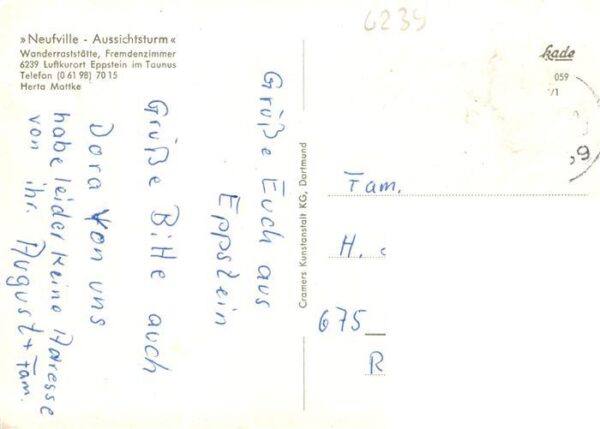 »Neufville - Aussichtsturm«
Wanderraststätte, Fremdenzimmer
6239 Luftkurort Eppstein im Taunus
Telefon (0 61 98) 70 15
Herta Mattke
6239
kade
059
/1
Grüße Euch aus
Eppstein
Grüße Bitte auch
Dora Von uns
habe leider keine Adresse
von ihr. August + Fam.
Cramers Kunstanstalt KG, Dortmund
Fam.
H.
675
R